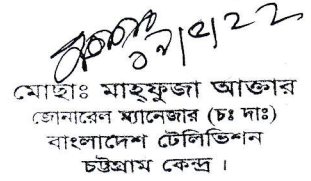 ১৭/৫/২২
মোছাঃ মাহ্‌ফুজা আক্তার
জেনারেল ম্যানেজার (চঃ দাঃ)
বাংলাদেশ টেলিভিশন
চট্টগ্রাম কেন্দ্র ।